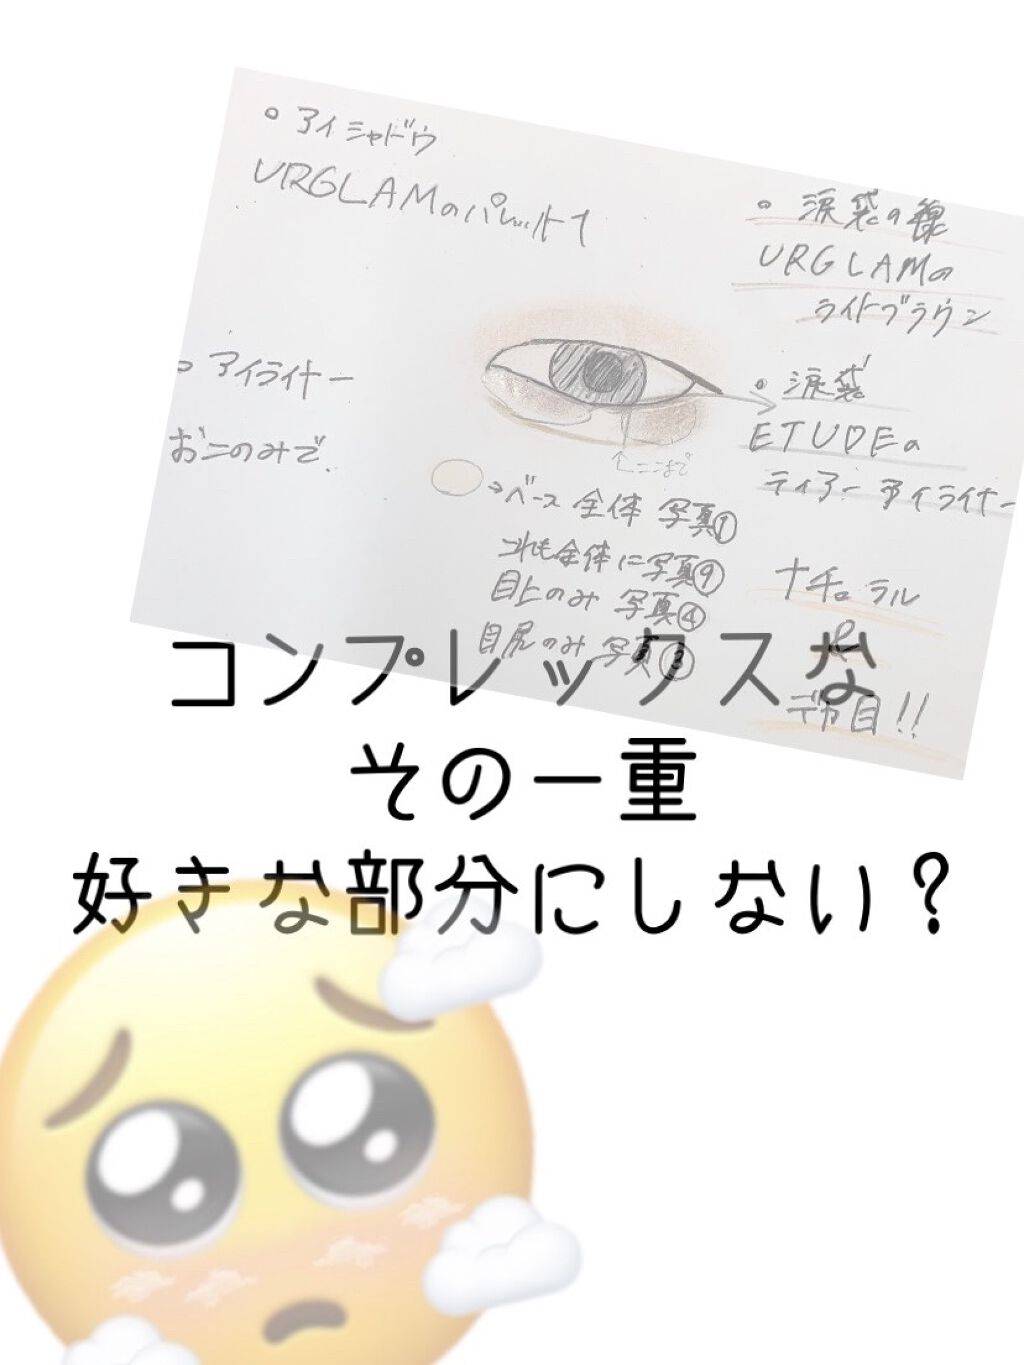 • アイシャドウ
URGLAMのパレット1
• 涙袋の線
URGLAMの
ライトブラウン
• アイライナー
おこのみで.
• 涙袋
ETUDEの
ティアーアイライナー
↑ここまで
→ベース 全体 写真①
これも全体に写真⑨
目上のみ 写真④
目尻のみ 写真③
ナチュラル
&
デカ目!!
コンプレックスな
その一重
好きな部分にしない?